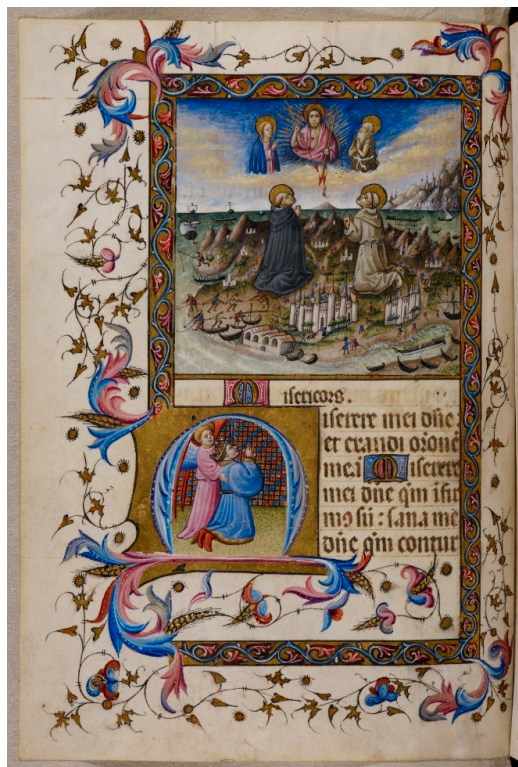 Misericors.
Miserere mei dñe:
et exaudi oronẽ
meã Miserere
mei dñe qm̃ ĩfir
mꝰ sũ : sana me
dñe qm̃ contur